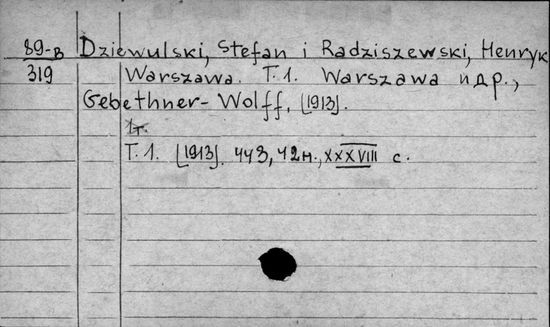 89-в Dziewulski, Stefan i Radziszewski, Henryk
319 Warszawa. T.1. Warszawa и др.,
Gebethner-Wolff, [1913].
1т.
T.1. [1913]. 443, 42н., XXXVIII с.